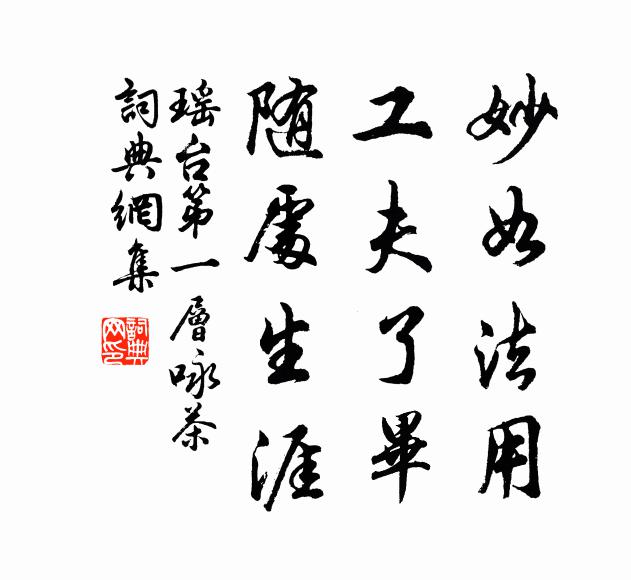 妙如法用
工夫了畢
隨處生涯
瑶台第一層咏茶
詞典網集
詞典网印